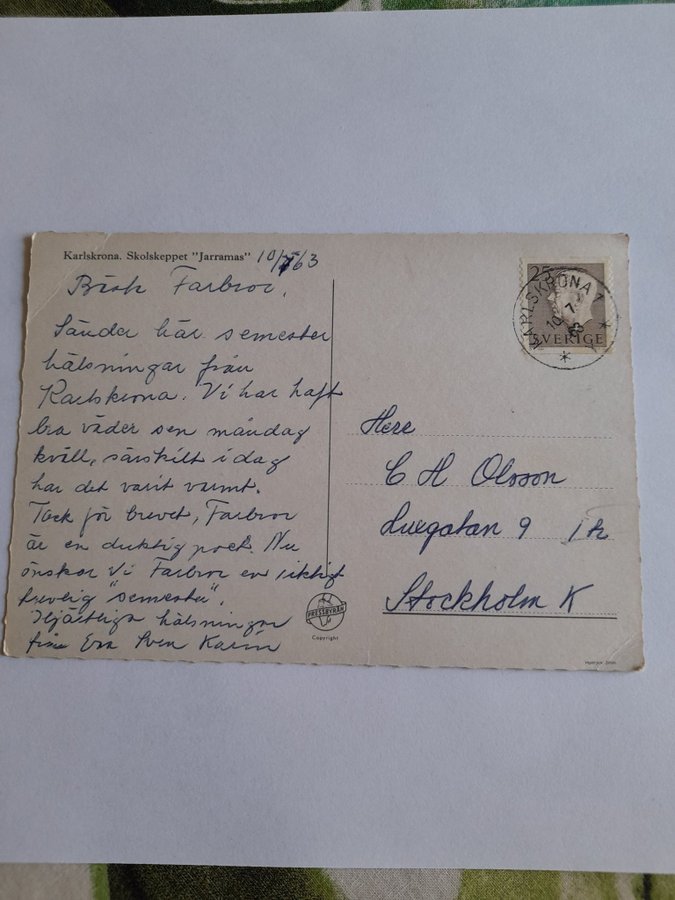 Karlskrona. Skolskeppet "Jarramas" 10/7 63
Bäste Farbror,
Sänder här semester
hälsningar från
Karlskrona. Vi har haft
bra väder sen måndag
kväll, särskilt idag
har det varit varmt.
Tack för brevet, Farbror
är en duktig poet. Nu
önskar vi Farbror en riktigt
trevlig "semester".
Hjärtliga hälsningar
från Eva Sven Karin
25
SVERIGE
KARLSKRONA 1
10 7 63
Herr
C H Olsson
Luxgatan 9
Stockholm K
PRESSBYRÅN
Copyright